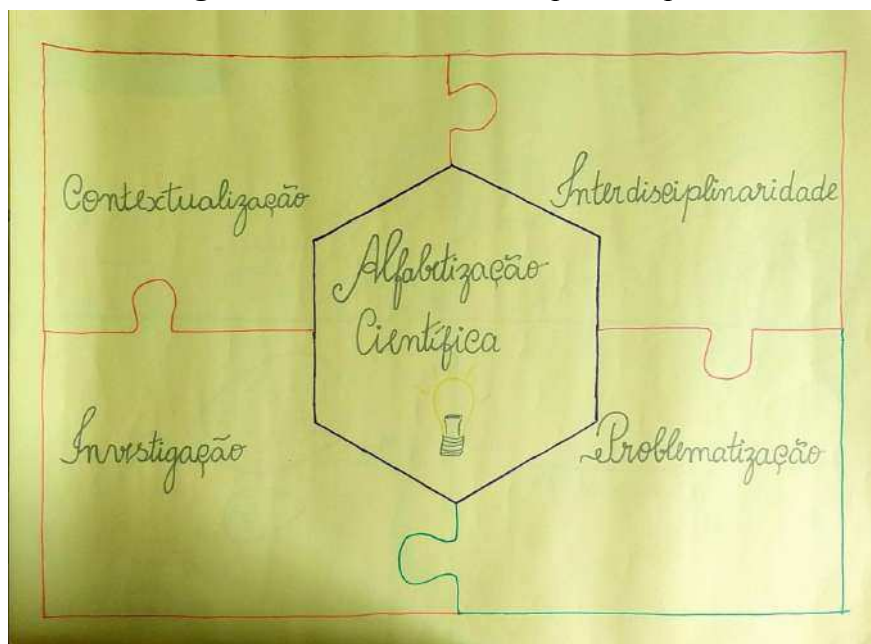 Contextualização
Interdisciplinaridade
Alfabetização
Científica
Investigação
Problematização